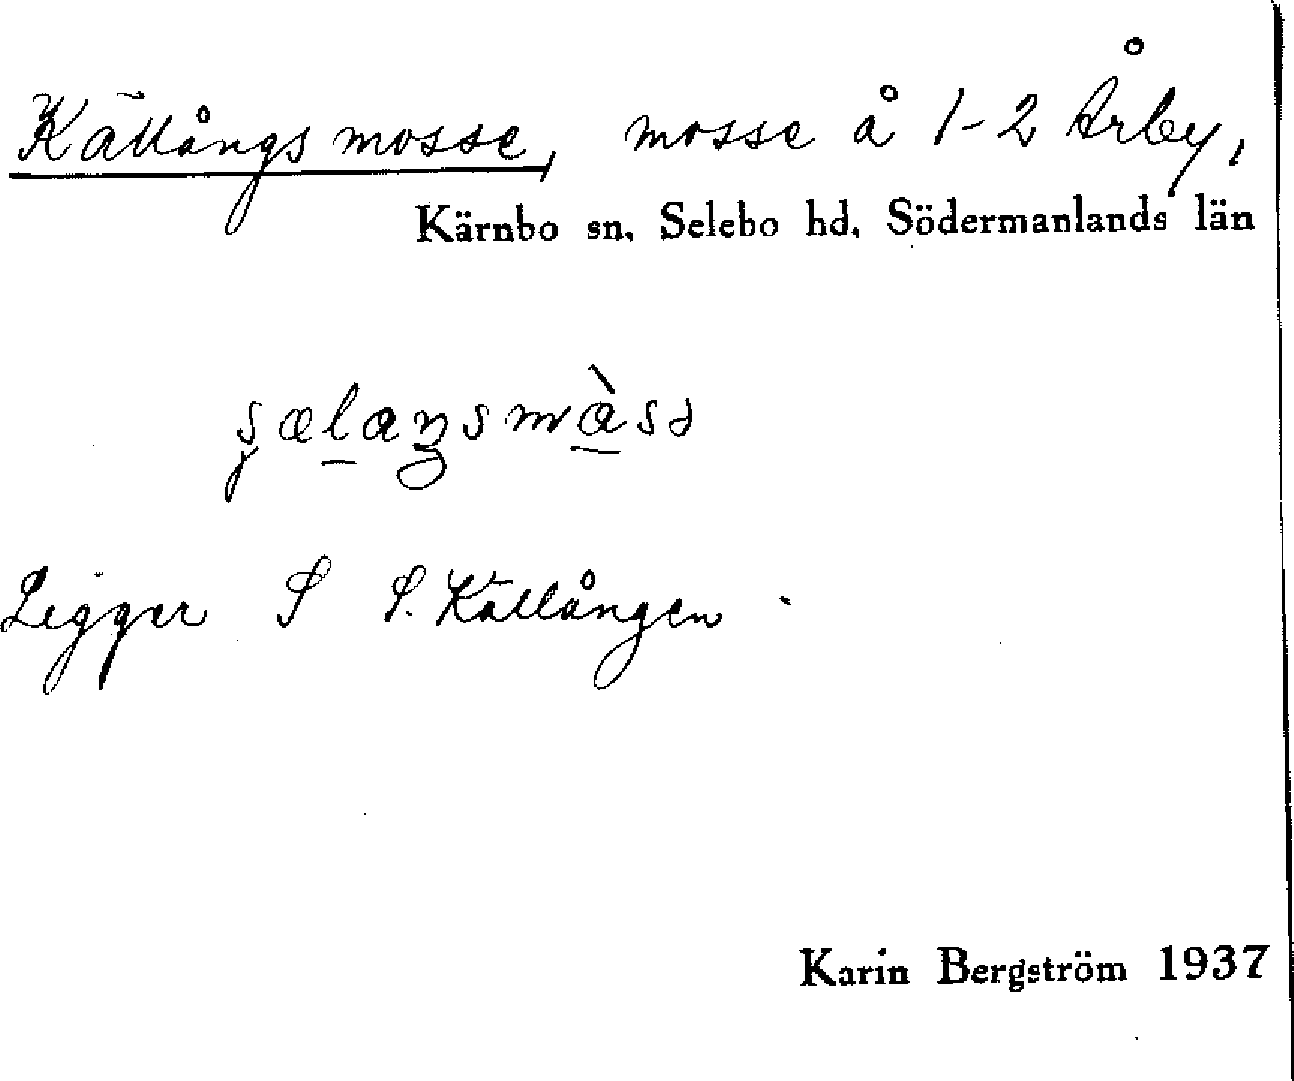 Källångsmosse, mosse å 1-2 Årby,
Kärnbo sn. Selebo hd. Södermanlands län
Ligger S S. Källången.
Karin Bergström 1937